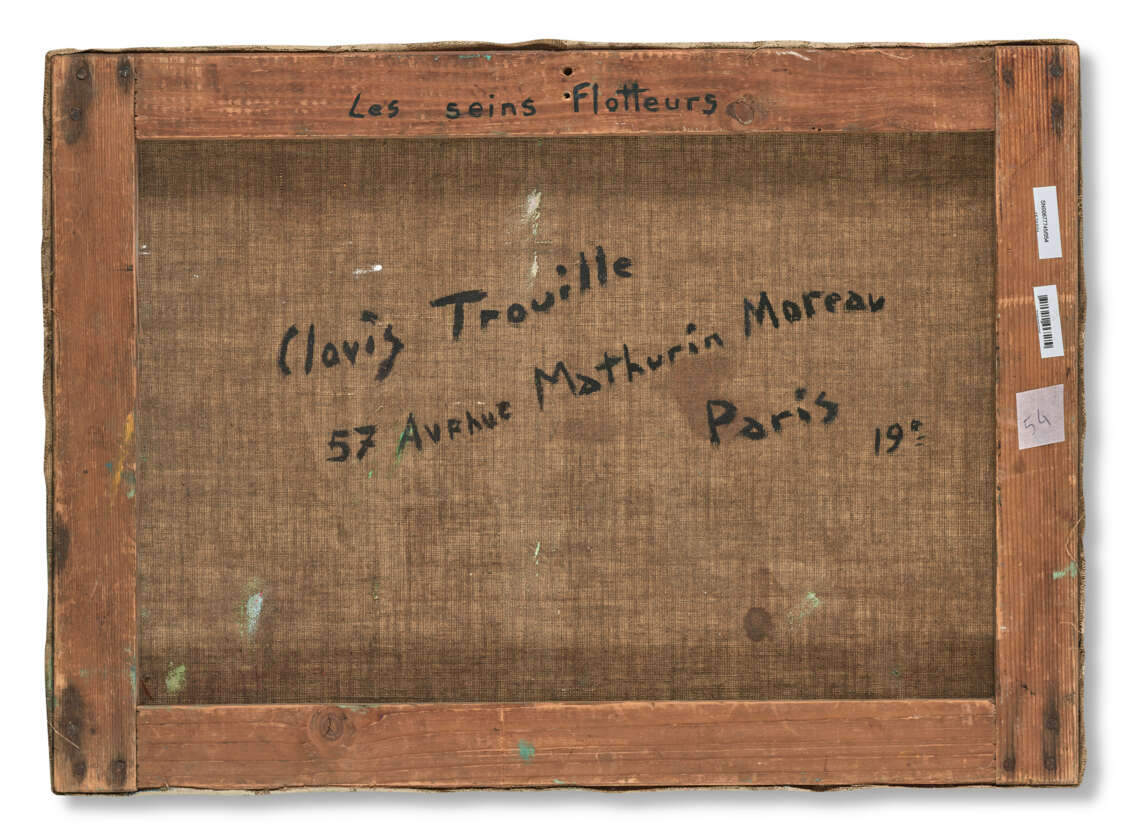 Les seins Flotteurs
Clovis Trouille
57 Avenue Mathurin Moreau
Paris 19e
54